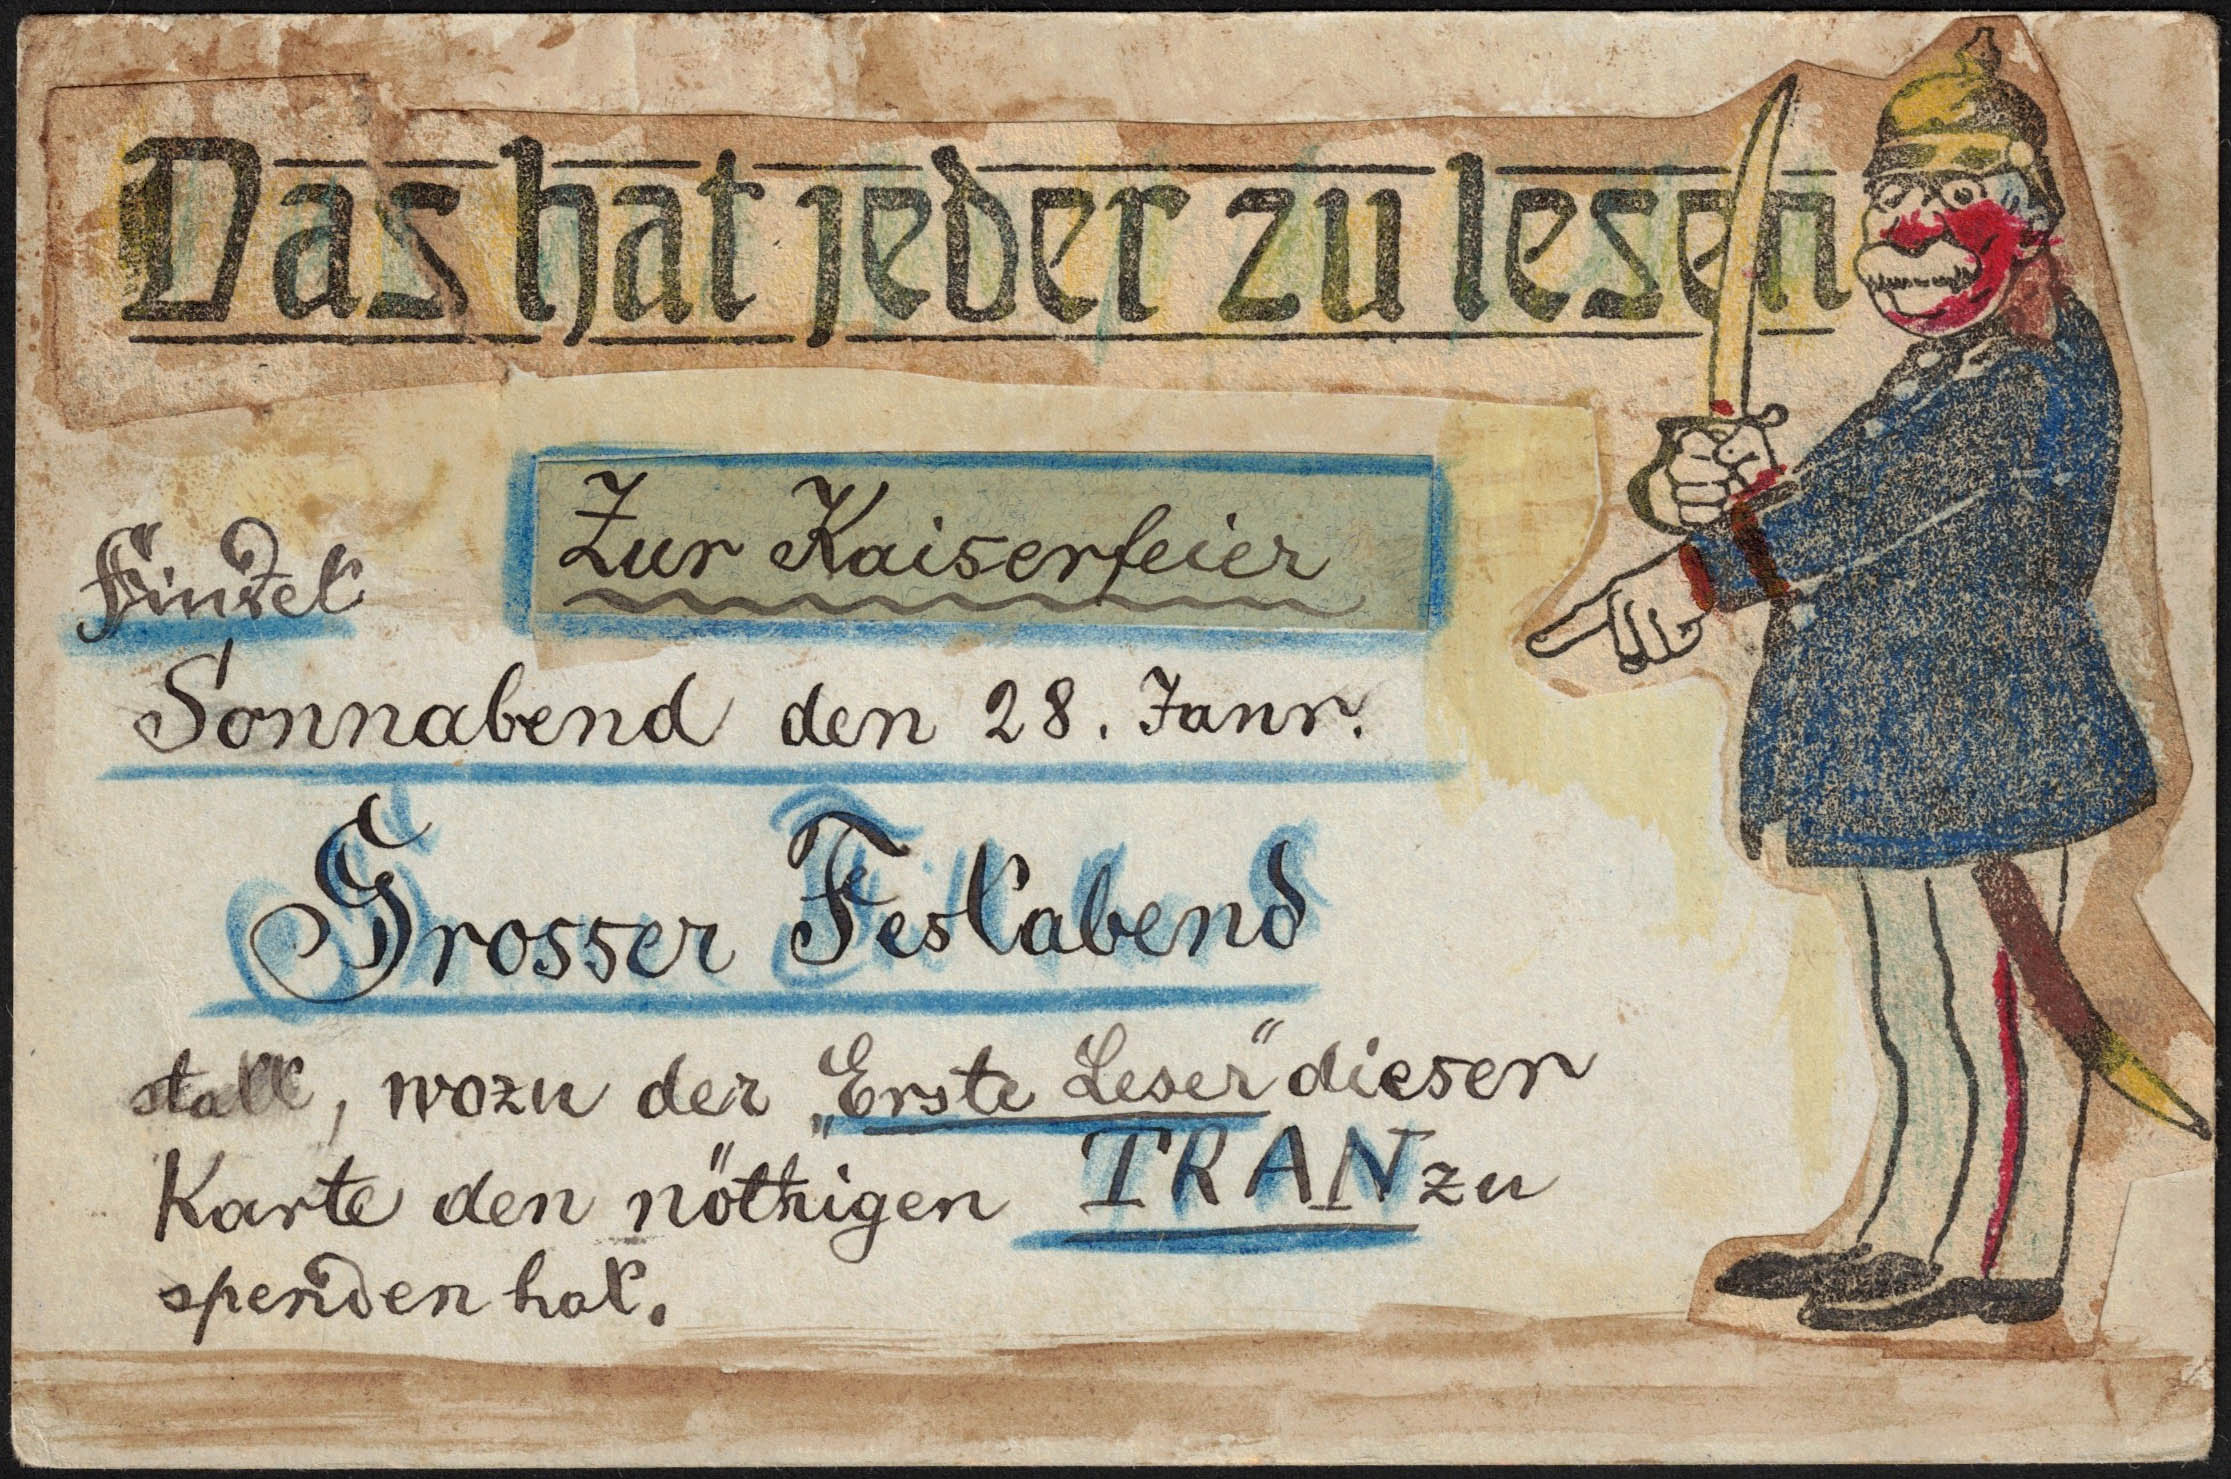 Das hat jeder zu lesen
Zur Kaiserfeier
findet
Sonnabend den 28. Janr.
Grosser Festabend
statt, wozu der „Erste Leser" dieser
Karte den nöthigen TRAN zu
spenden hat.